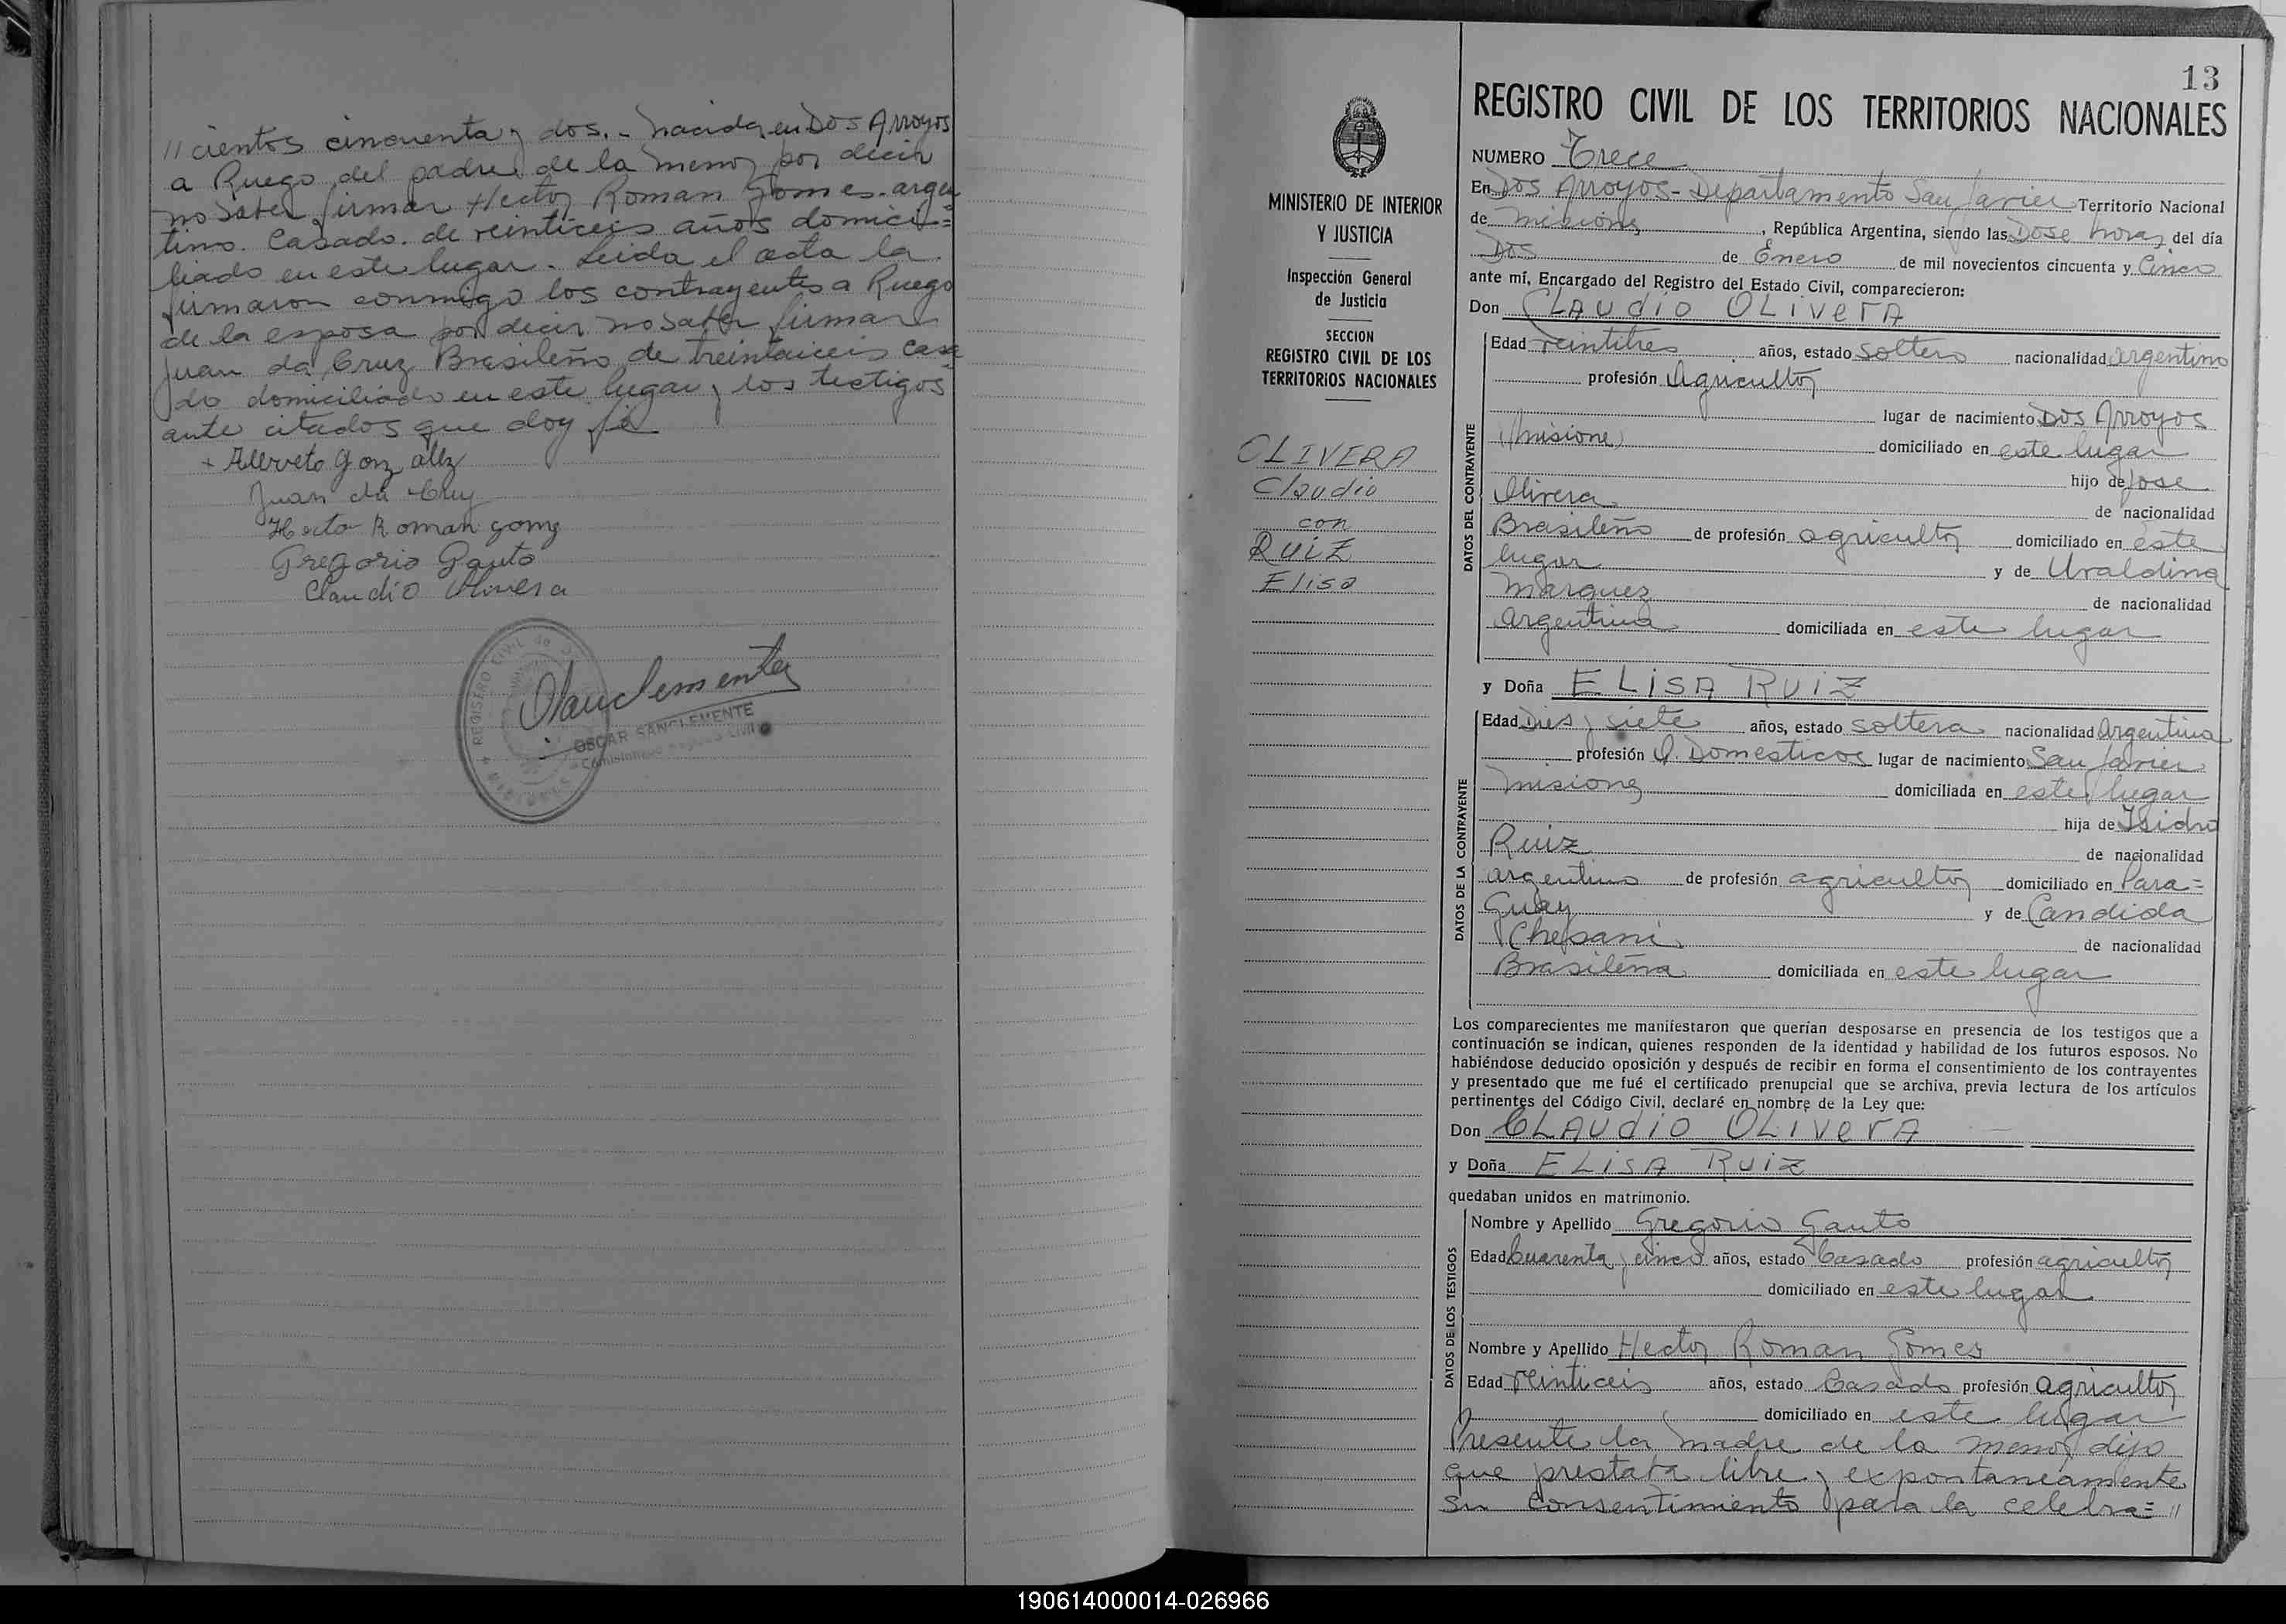 // cientos cincuenta y dos. - nacida en Dos Arroyos
a Ruego del padre de la menor por decir
no saber firmar Hector Roman Gomes. argen
tino. Casado. de veinticeis años domici=
liado en este lugar. Leida el acta la
firmaron conmigo los contrayentes a Ruego
de la esposa por decir no saber firmar
Juan da Cruz Brasileño de treintaiceis casa
do domiciliado en este lugar y los tectigos
ante citados que doy fé
+ Alerveto Gonzallz
Juan da Cruz
Hecto Roman gomz
Gregorio Gauto
Claudio Olivera
REGISTRO CIVIL de
MISIONES
OSCAR SANCLEMENTE
13
REGISTRO CIVIL DE LOS TERRITORIOS NACIONALES
MINISTERIO DE INTERIOR
Y JUSTICIA
Inspección General
de Justicia
SECCION
REGISTRO CIVIL DE LOS
TERRITORIOS NACIONALES
OLIVERA
Claudio
con
RUIZ
Elisa
NUMERO Trece
En Dos Arroyos - Departamento San Javier Territorio Nacional
de misiones, República Argentina, siendo las Dose horas del día
Dos de Enero de mil novecientos cincuenta y Cinco
ante mí, Encargado del Registro del Estado Civil, comparecieron:
Don CLAUdio OLiverA
DATOS DEL CONTRAYENTE
Edad veintitres años, estado soltero nacionalidad argentino
profesión Agricultor
lugar de nacimiento Dos Arroyos
(misiones) domiciliado en este lugar
hijo de Jose
Olivera de nacionalidad
Brasileño de profesión agricultor domiciliado en este
lugar y de Uraldina
Marquez de nacionalidad
argentina domiciliada en este lugar
y Doña ELiSA RUiZ
DATOS DE LA CONTRAYENTE
Edad Dies y siete años, estado soltera nacionalidad Argentina
profesión Q. Domesticos lugar de nacimiento San Javier
misiones domiciliada en este lugar
hija de Isidro
Ruiz de nacionalidad
argentino de profesión agricultor domiciliado en Para=
Guay y de Candida
Chepani de nacionalidad
Brasileña domiciliada en este lugar
Los comparecientes me manifestaron que querían desposarse en presencia de los testigos que a
continuación se indican, quienes responden de la identidad y habilidad de los futuros esposos. No
habiéndose deducido oposición y después de recibir en forma el consentimiento de los contrayentes
y presentado que me fué el certificado prenupcial que se archiva, previa lectura de los artículos
pertinentes del Código Civil, declaré en nombre de la Ley que:
Don CLAUdiO OLiVerA
y Doña ELiSA RUiZ
quedaban unidos en matrimonio.
DATOS DE LOS TESTIGOS
Nombre y Apellido Gregorio Gauto
Edad Cuarenta y cinco años, estado Casado profesión agricultor
domiciliado en este lugar
Nombre y Apellido Hector Roman Gomes
Edad veinticeis años, estado Casado profesión agricultor
domiciliado en este lugar
Presente la madre de la menor dijo
que prestaba libre y expontaneamente
su consentimiento para la celebra= //
190614000014-026966